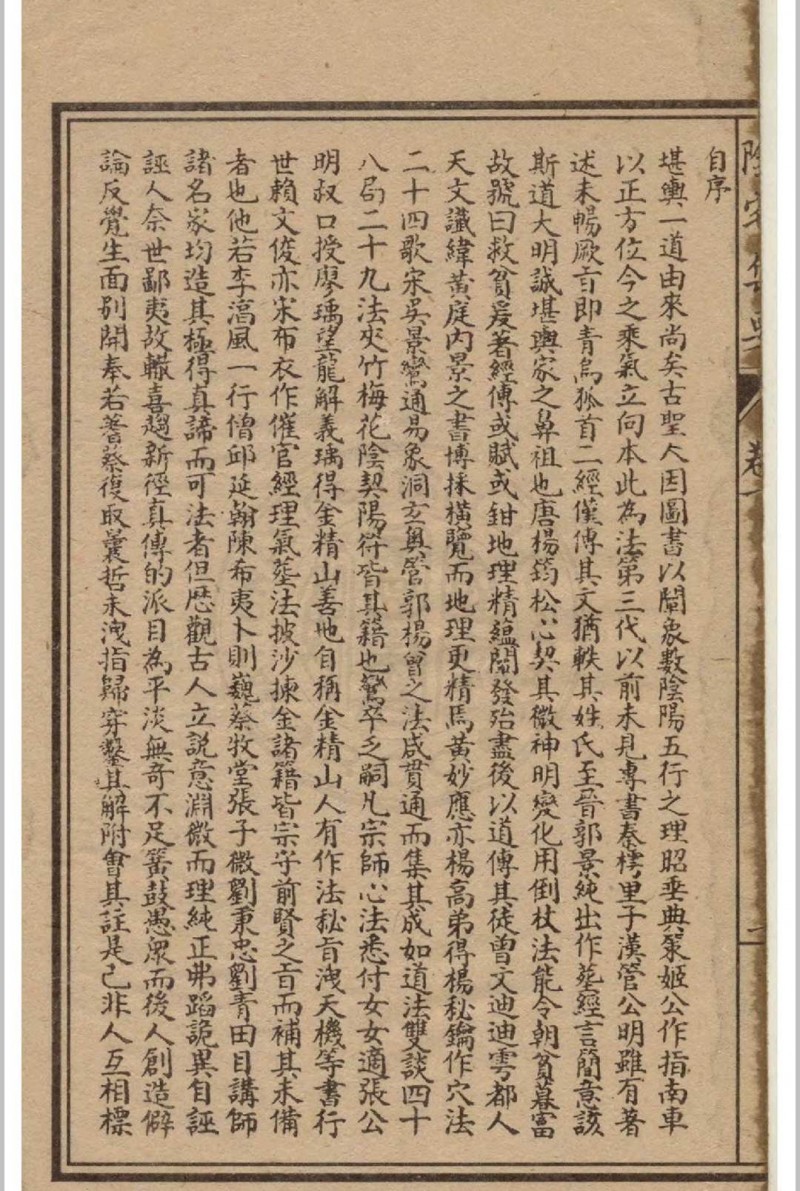 自序
堪輿一道由來尚矣古聖人因圖書以闡象數陰陽五行之理昭垂典策姬公作指南車
以正方位今之乘氣立向本此為法第三代以前未見專書秦樗里子漢管公明雖有著
述未暢厥旨即青烏狐首二經僅傳其文猶軼其姓氏至晉郭景純出作葬經言簡意該
斯道大明誠堪輿家之鼻祖也唐楊筠松心契其微神明變化用倒杖法能令朝貧暮富
故號曰救貧爰著經傳或賦或鉗地理精蘊闡發殆盡後以道傳其徒曾文迪迪雩都人
天文讖緯黃庭內景之書博採橫覽而地理更精焉黃妙應亦楊高弟得楊秘鑰作穴法
二十四歌宋吳景鸞通易象洞玄奧管郭楊曾之法咸貫通而集其成如道法雙談四十
八局二十九法夾竹梅花陰契陽符皆其籍也鸞卒乏嗣凡宗師心法悉付女女適張公
明叔口授廖瑀望龍解義瑀得金精山善地自稱金精山人有作法秘旨洩天機等書行
世賴文俊亦宋布衣作催官經理氣葬法披沙揀金諸籍皆宗守前賢之旨而補其未備
者也他若李淳風一行僧邱延翰陳希夷卜則巍蔡牧堂張子微劉秉忠劉青田目講師
諸名家均造其極得真諦而可法者但歷觀古人立說意淵微而理純正弗蹈詭異自誣
誣人奈世鄙夷故轍喜趨新徑真傳的派目為平淡無奇不足簧鼓愚眾而後人創造僻
論反覺生面別開奉若蓍蔡復取曩哲未洩指歸穿鑿其解附會其註是己非人互相標
卷一